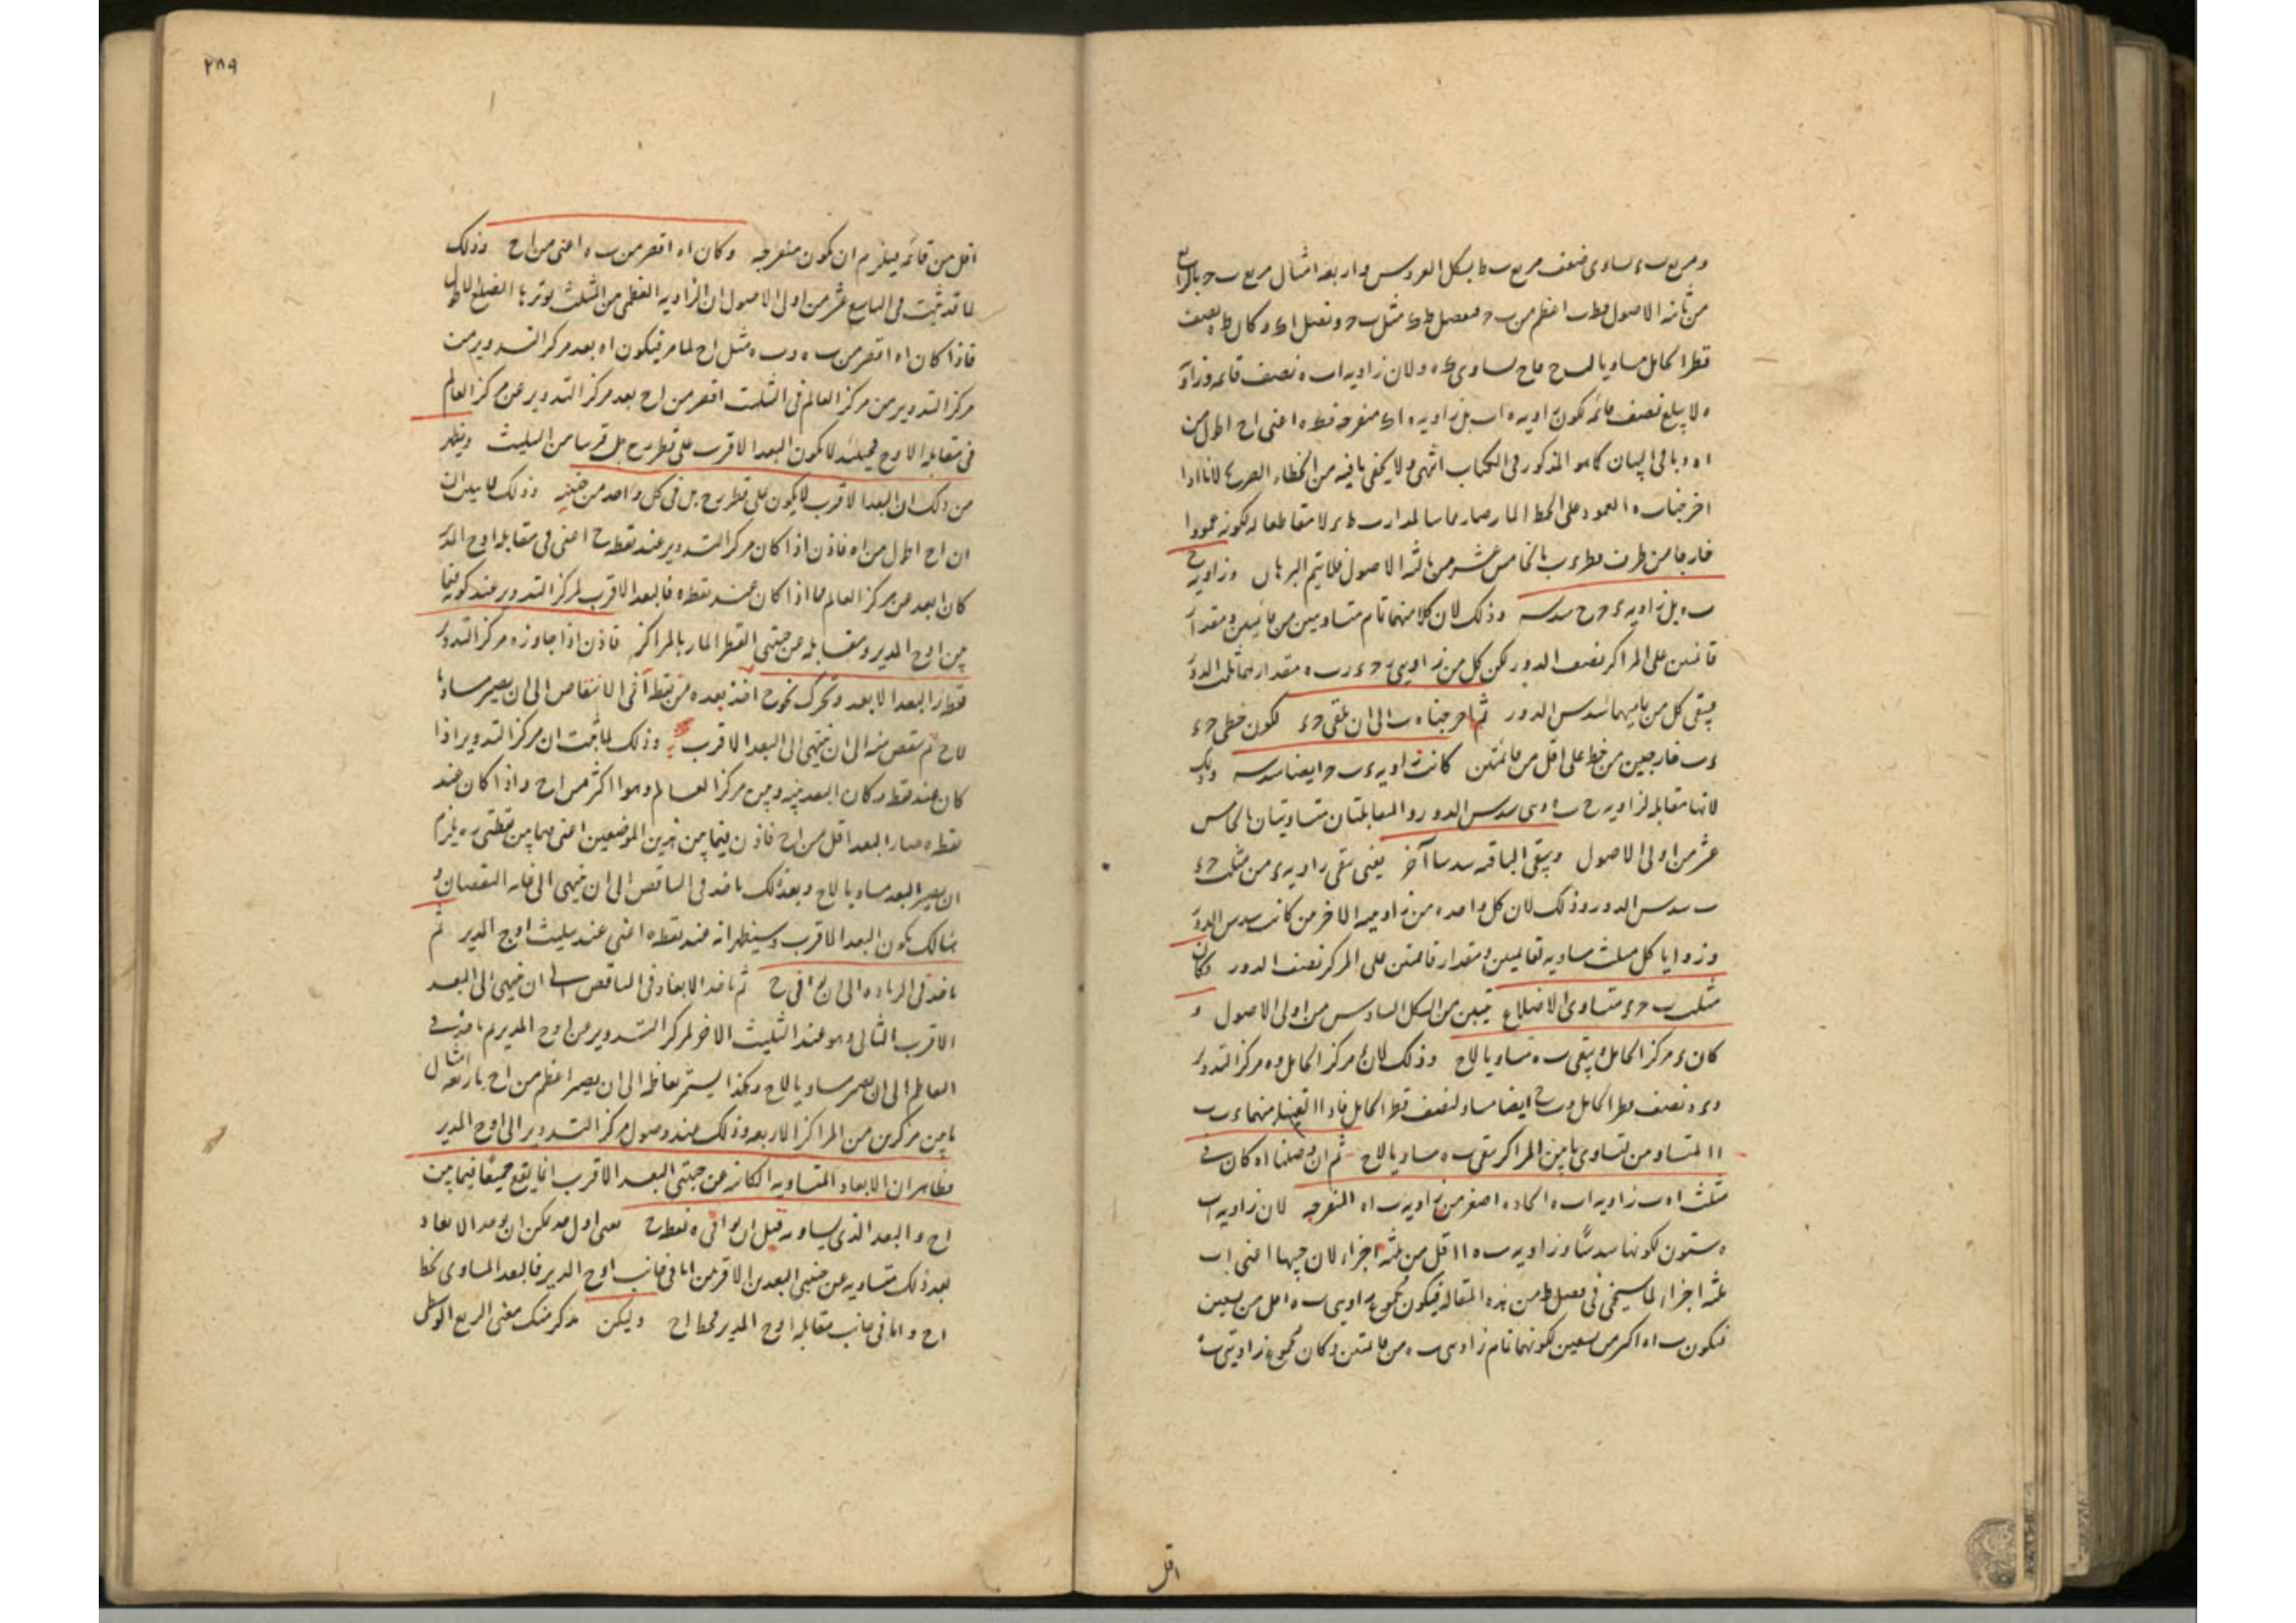 ومربع ب ء يساوى ضعف مربع ب ط بشكل العروس واربعة امثال مربع ب ح بالرابع
من ثانية الاصول فط ب اعظم من ب ح فنفصل ط ك مثل ب ح ونصل ا ك وكان ط ه نصف
قطر الحامل مساويا لـ ح فاح يساوى ك ه ولان زاوية ا ب ه نصف قائمة وزاوية
ه لا يبلغ نصف قائمة يكون زاوية ه ا ب بل زاوية ه ا ك منفرجة فك ه اعنى ا ح اطول من
ا ه وباقى البيان كما هو المذكور فى الكتاب انتهى ولا يخفى ما فيه من الخطاء الصريح لانا اذا
اخرجنا ب ه العمود على الخط المار صار مماسا لمدار ب ط ء لا مقاطعا له لكونه عمودا
خارجا من طرف قطر ء ب بالخامس عشر من ثالثة الاصول فلا يتم البرهان وزاوية ح
ب ه بل زاوية ء ح ح سدسه وذلك لان كلا منهما تمام متساويين من قائمتين ومقدار
قائمتين على المراكز نصف الدور لكن كل من زاويتى ر ح ء ر ب ه مقدارهما ثلث الدور
فيبقى كل من باقيهما سدس الدور ثم اخرجنا ه ب الى ان يلقى ح ء لكون خطى ح ء
ء ب خارجين من خط على اقل من قائمتين كانت زاوية ء ب ح ايضا سدسه وذلك
لانها مقابلة لزاوية ح ب ه وهى سدس الدور والمقابلتان متساويتان بالخامس
عشر من اولى الاصول ويبقى الباقية سدسا آخر يعنى تبقى زاوية ء من مثلث ح ء
ب سدس الدور وذلك لان كل واحدة من زاوييه الاخرين كانت سدس الدور
وزوايا كل مثلث مساوية لقائمتين ومقدار قائمتين على المركز نصف الدور وكان
مثلث ب ح ء متساوى الاضلاع تبين من الشكل السادس من اولى الاصول و
كان ء مركز الحامل ه يبقى ب ه مساويا لاح وذلك لان ء مركز الحامل و ه مركز التدوير
و ء ه نصف قطر الحامل و ب ح ايضا مساو لنصف قطر الحامل فاذا القينا منهما ء ب
ا ا المتساويين لتساوى ما بين المراكز بقى ب ه مساويا لاح ثم ان وصلنا ا ه كان فى
مثلث ا ه ب زاوية ا ب ه الحادة اصغر من زاوية ب ا ه المنفرجة لان زاوية ا ب
ه ستون لكونها سدسا وزاوية ب ه ا اقل من ثلثة اجزاء لان جيبها اعنى ا ب
ثلثة اجزاء لما سيجئ فى فصل ط من هذه المقالة فيكون مجموع زاويتى ب ه اقل من تسعين
فيكون ب ا ه اكبر من تسعين لكونها تمام زاويتى ب ه من قائمتين وكان مجموع زاويتى ب ه
اقل
٢٨٩
اقل من قائمة فيلزم ان يكون منفرجة وكان ا ه اقصر من ب ه اعنى من ا ح وذلك
لما قد ثبت فى التاسع عشر من اولى الاصول ان الزاوية العظمى من المثلث يوترها الضلع الاطول
فاذا كان ا ه اقصر من ب ه و ب ه مثل ا ح لما مر فيكون ا ه بعد مركز التدوير من
مركز التدوير من مركز العالم فى التثليث اقصر من ا ح بعد مركز التدوير عن مركز العالم
فى مقابلة الاوج فحينئذ لا يكون البعد الاقرب على قطر ر ح بل قريبا من التثليث ويظهر
من ذلك ان البعد الاقرب لا يكون على قطر ر ح بل فى كل واحد من جنبيه وذلك لما تبين ان
ان ا ح اطول من ا ه فاذن اذا كان مركز التدوير عند نقطة ح اعنى فى مقابلة اوج المدير
كان ابعد من مركز العالم مما اذا كان عند نقطة ه فالبعد الاقرب لمركز التدوير عند كونه فيما
بين اوج المدير ومقابله عن جنبتى القطر المار بالمراكز فاذن اذا جاوز ه مركز التدوير
قطر ر البعد الابعد وتحرك نحو ح اخذ بعده من نقطة ا فى الانتقاص الى ان يصير مساويا
لاح ثم ينقص منه الى ان ينتهى الى البعد الاقرب وذلك لما ثبت ان مركز التدوير اذا
كان عند نقطة ر كان البعد بينه وبين مركز العالم وهو ا اكثر من ا ح واذا كان عند
نقطة ه صار البعد اقل من ا ح فاذن فيما بين هذين الموضعين اعنى فيما بين نقطتى ر ه يلزم
ان يصير البعد مساويا لاح وبعد ذلك ياخذ فى التناقص الى ان ينتهى الى غاية النقصان و
هنالك يكون البعد الاقرب وسيظهر انه عند نقطة ه اعنى عند تثليث اوج المدير ثم
ياخذ فى الزيادة الى ان يوافى ح ثم ياخذ الابعاد فى التناقص الى ان ينتهى الى البعد
الاقرب الثانى وهو عند التثليث الاخر لمركز التدوير من اوج المدير ثم ياخذ فى
التعاظم الى ان يصير مساويا لاح وهكذا يستمر تعاظما الى ان يصير اعظم من ا ح باربعة امثال
ما بين مركزين من المراكز الاربعة وذلك عند وصول مركز التدوير الى اوج المدير
فظاهر ان الابعاد المتساوية الكائنة عن جنبتى البعد الاقرب انما يقع جميعا فيما بين
ا ح والبعد الذى يساويه قبل ان يوافى ه نقطة ح يعنى اول ما يمكن ان يوجد الابعاد
بعد ذلك متساوية عن جنبتى البعدين الاقربين اما فى جانب اوج المدير فالبعد المساوى لخط
ا ح واما فى جانب مقابلة اوج المدير فخط ا ح وليكن بذكر منك معنى الربع الوسطى